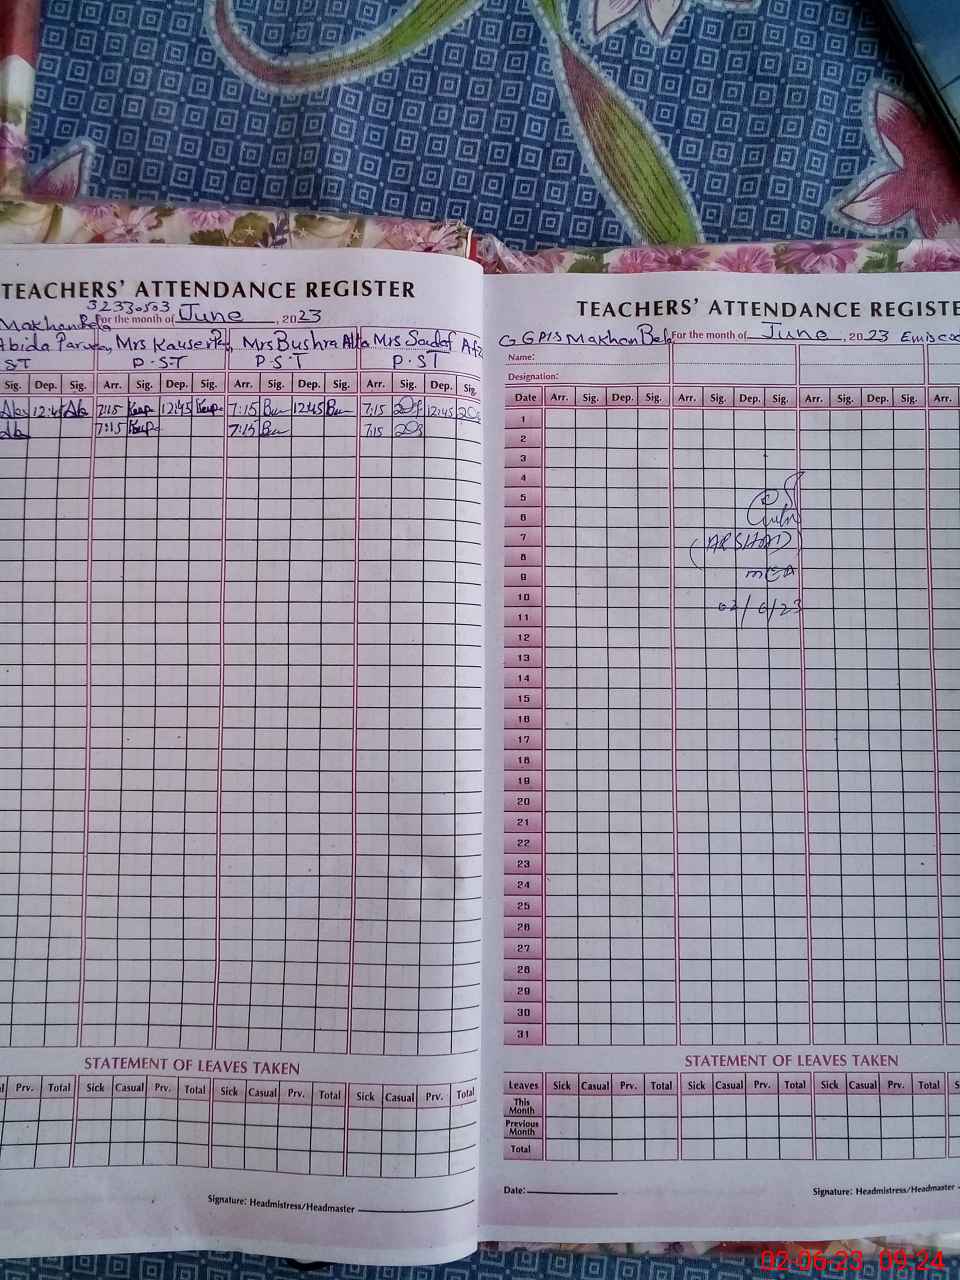 TEACHERS' ATTENDANCE REGISTER
32330503
Makhan Bela For the month of June, 2023
Abida Parveen, Mrs Kauser P, Mrs Bushra Alta Mrs Sadaf Afz
ST P.S.T P.S.T P.ST
Sig. Dep. Sig. Arr. Sig. Dep. Sig. Arr. Sig. Dep. Sig. Arr. Sig. Dep. Sig.
12:45 7:15 12:45 7:15 12:45 7:15 12:45
7:15 7:15 7:15
STATEMENT OF LEAVES TAKEN
Prv. Total Sick Casual Prv. Total Sick Casual Prv. Total Sick Casual Prv. Total
Signature: Headmistress/Headmaster
TEACHERS' ATTENDANCE REGISTE
GGP/S Makhan Bela For the month of June, 2023 Emiscod
Name:
Designation:
Date Arr. Sig. Dep. Sig. Arr. Sig. Dep. Sig. Arr. Sig. Dep. Sig. Arr.
1
2
3
4
5
6
7 (ARSHAD)
8
9 MEA
10
11 02/6/23
12
13
14
15
16
17
18
19
20
21
22
23
24
25
26
27
28
29
30
31
STATEMENT OF LEAVES TAKEN
Leaves Sick Casual Prv. Total Sick Casual Prv. Total Sick Casual Prv. Total S
This Month
Previous Month
Total
Date:
Signature: Headmistress/Headmaster
02-06-23 09:24